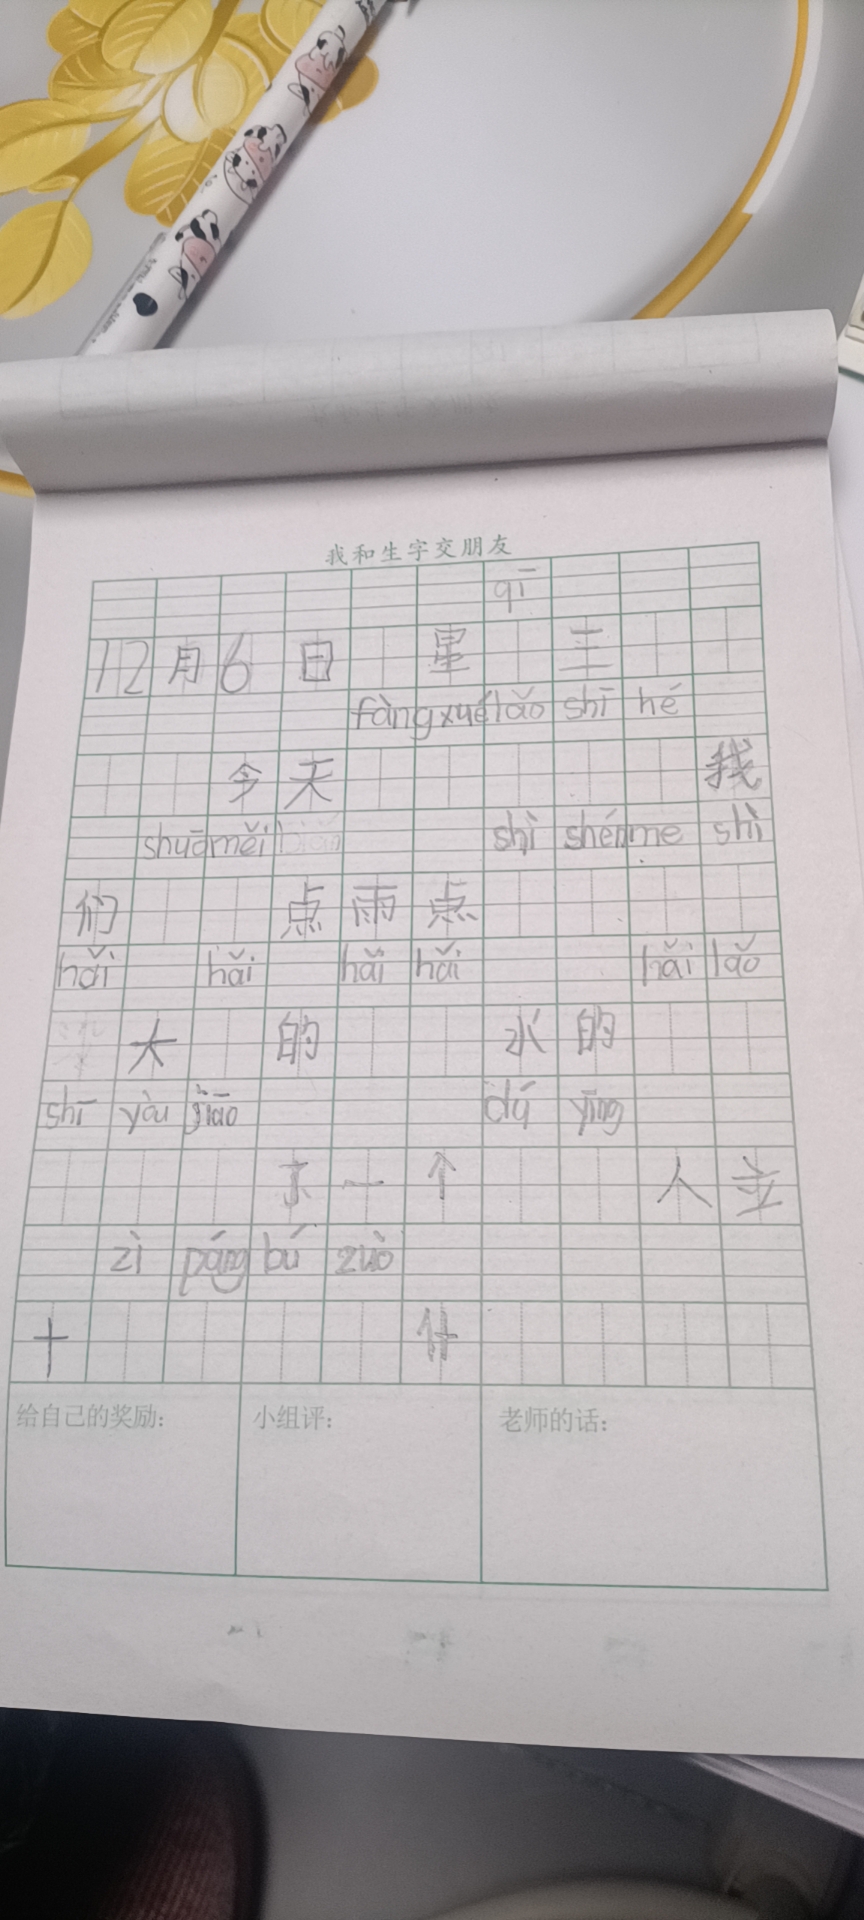 我和生字交朋友
qī
12月6日 星 三
fàng xué lǎo shī hé
今天 我
shuō měi biān shì shén me shì
们 点雨点
hǎi hǎi hǎi hǎi hǎi lǎo
大 的 水的
shī yòu jiāo dú yīng
了一个 人立
zì páng bú zuò
十 什
给自己的奖励：
小组评：
老师的话：